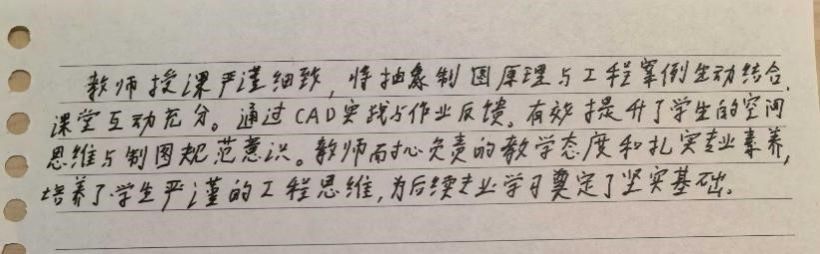 教师授课严谨细致，将抽象制图原理与工程案例生动结合，
课堂互动充分。通过CAD实践与作业反馈，有效提升了学生的空间
思维与制图规范意识。教师耐心负责的教学态度和扎实专业素养，
培养了学生严谨的工程思维，为后续专业学习奠定了坚实基础。